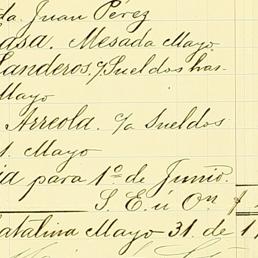 da. Juan Pérez
Casa. Mesada Mayo.
Landeros. c/ Sueldos has-
Mayo
Arreola. c/a Sueldos
Mayo
para 1º de Junio.
S. E. ú On. $
Catalina Mayo 31. de 1